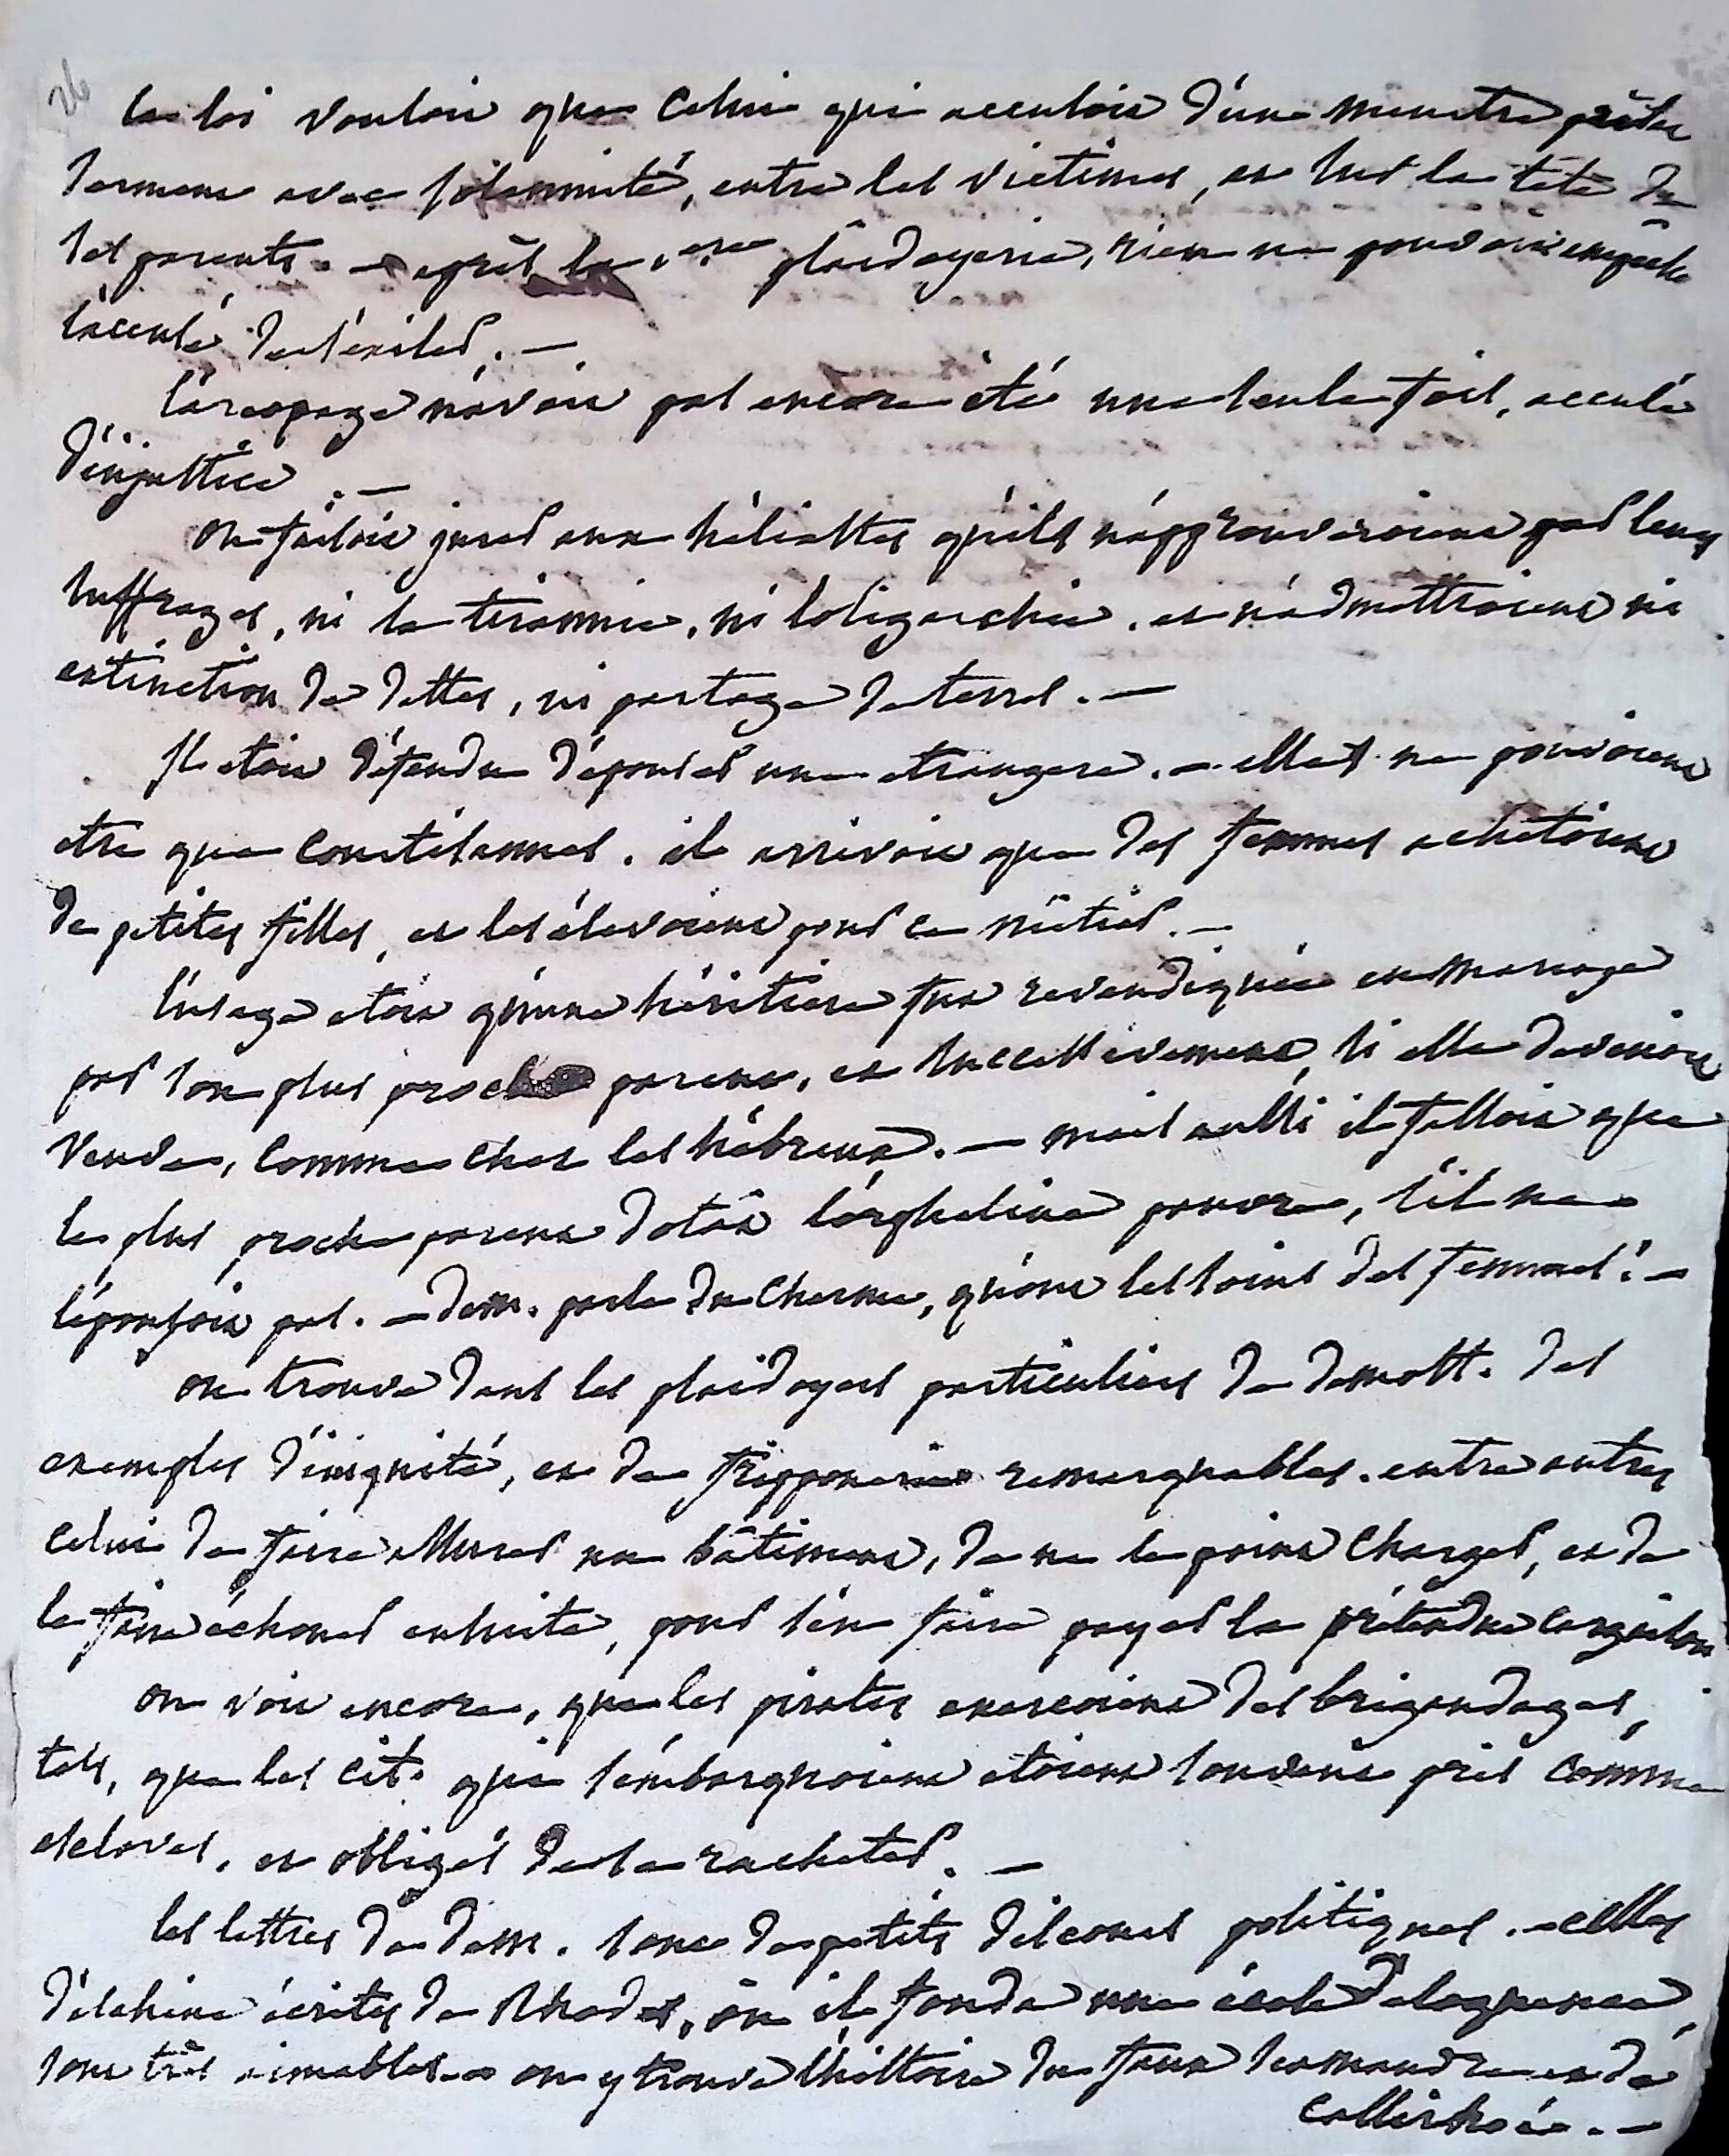 26
la loi vouloit que celui qui accusoit d'un meurtre prêtat
serment avec solemnité, entre les victimes, et sur la tete de
ses parents. — après la 1ere plaidoyerie, rien ne pouvoit empêcher
l'accusé de s'exiler. —
l'areopage n'avoit pas encore été une seule fois, accusé
d'injustice. —
on faisoit jurer aux héliastes qu'ils n'approuveroient par leurs
suffrages, ni la tirannie, ni l'oligarchie. et n'admettroient ni
extinction de dettes, ni partage de terres. —
Il etoit défendu d'épouser une etrangere. — elles ne pouvoient
etre que courtisannes. il arrivoit que des femmes achetoient
de petites filles, et les élevoient pour ce métier. —
l'usage etoit qu'une héritiere fut revendiquée en mariage
par son plus proche parent, et successivement, si elle devenoit
veuve, comme chez les hébreux. — mais aussi il falloit que
le plus proche parent dotât l'orpheline pauvre, s'il ne
l'épousoit pas. — dem. parle du charme, qu'ont les soins des femmes. —
on trouve dans les plaidoyers particuliers de demost. des
exemples d'iniquité, et de fripponerie remarquables. entre autres
celui de faire assurer un bâtiment, de ne le point charger, et de
le faire échouer ensuite, pour s'en faire payer la prétendue cargaison
on voit encore, que les pirates exercoient des brigandages,
tels, que les cit. qui s'embarquoient etoient souvent pris comme
esclaves, et obligés de se racheter. —
les lettres de dem. sont de petits discours politiques. — celles
d'eschine écrites de Rhodes, où il fonda une école d'eloquence,
sont très aimables. — on y trouve l'histoire du faux scamandre et de
callirhoé. —